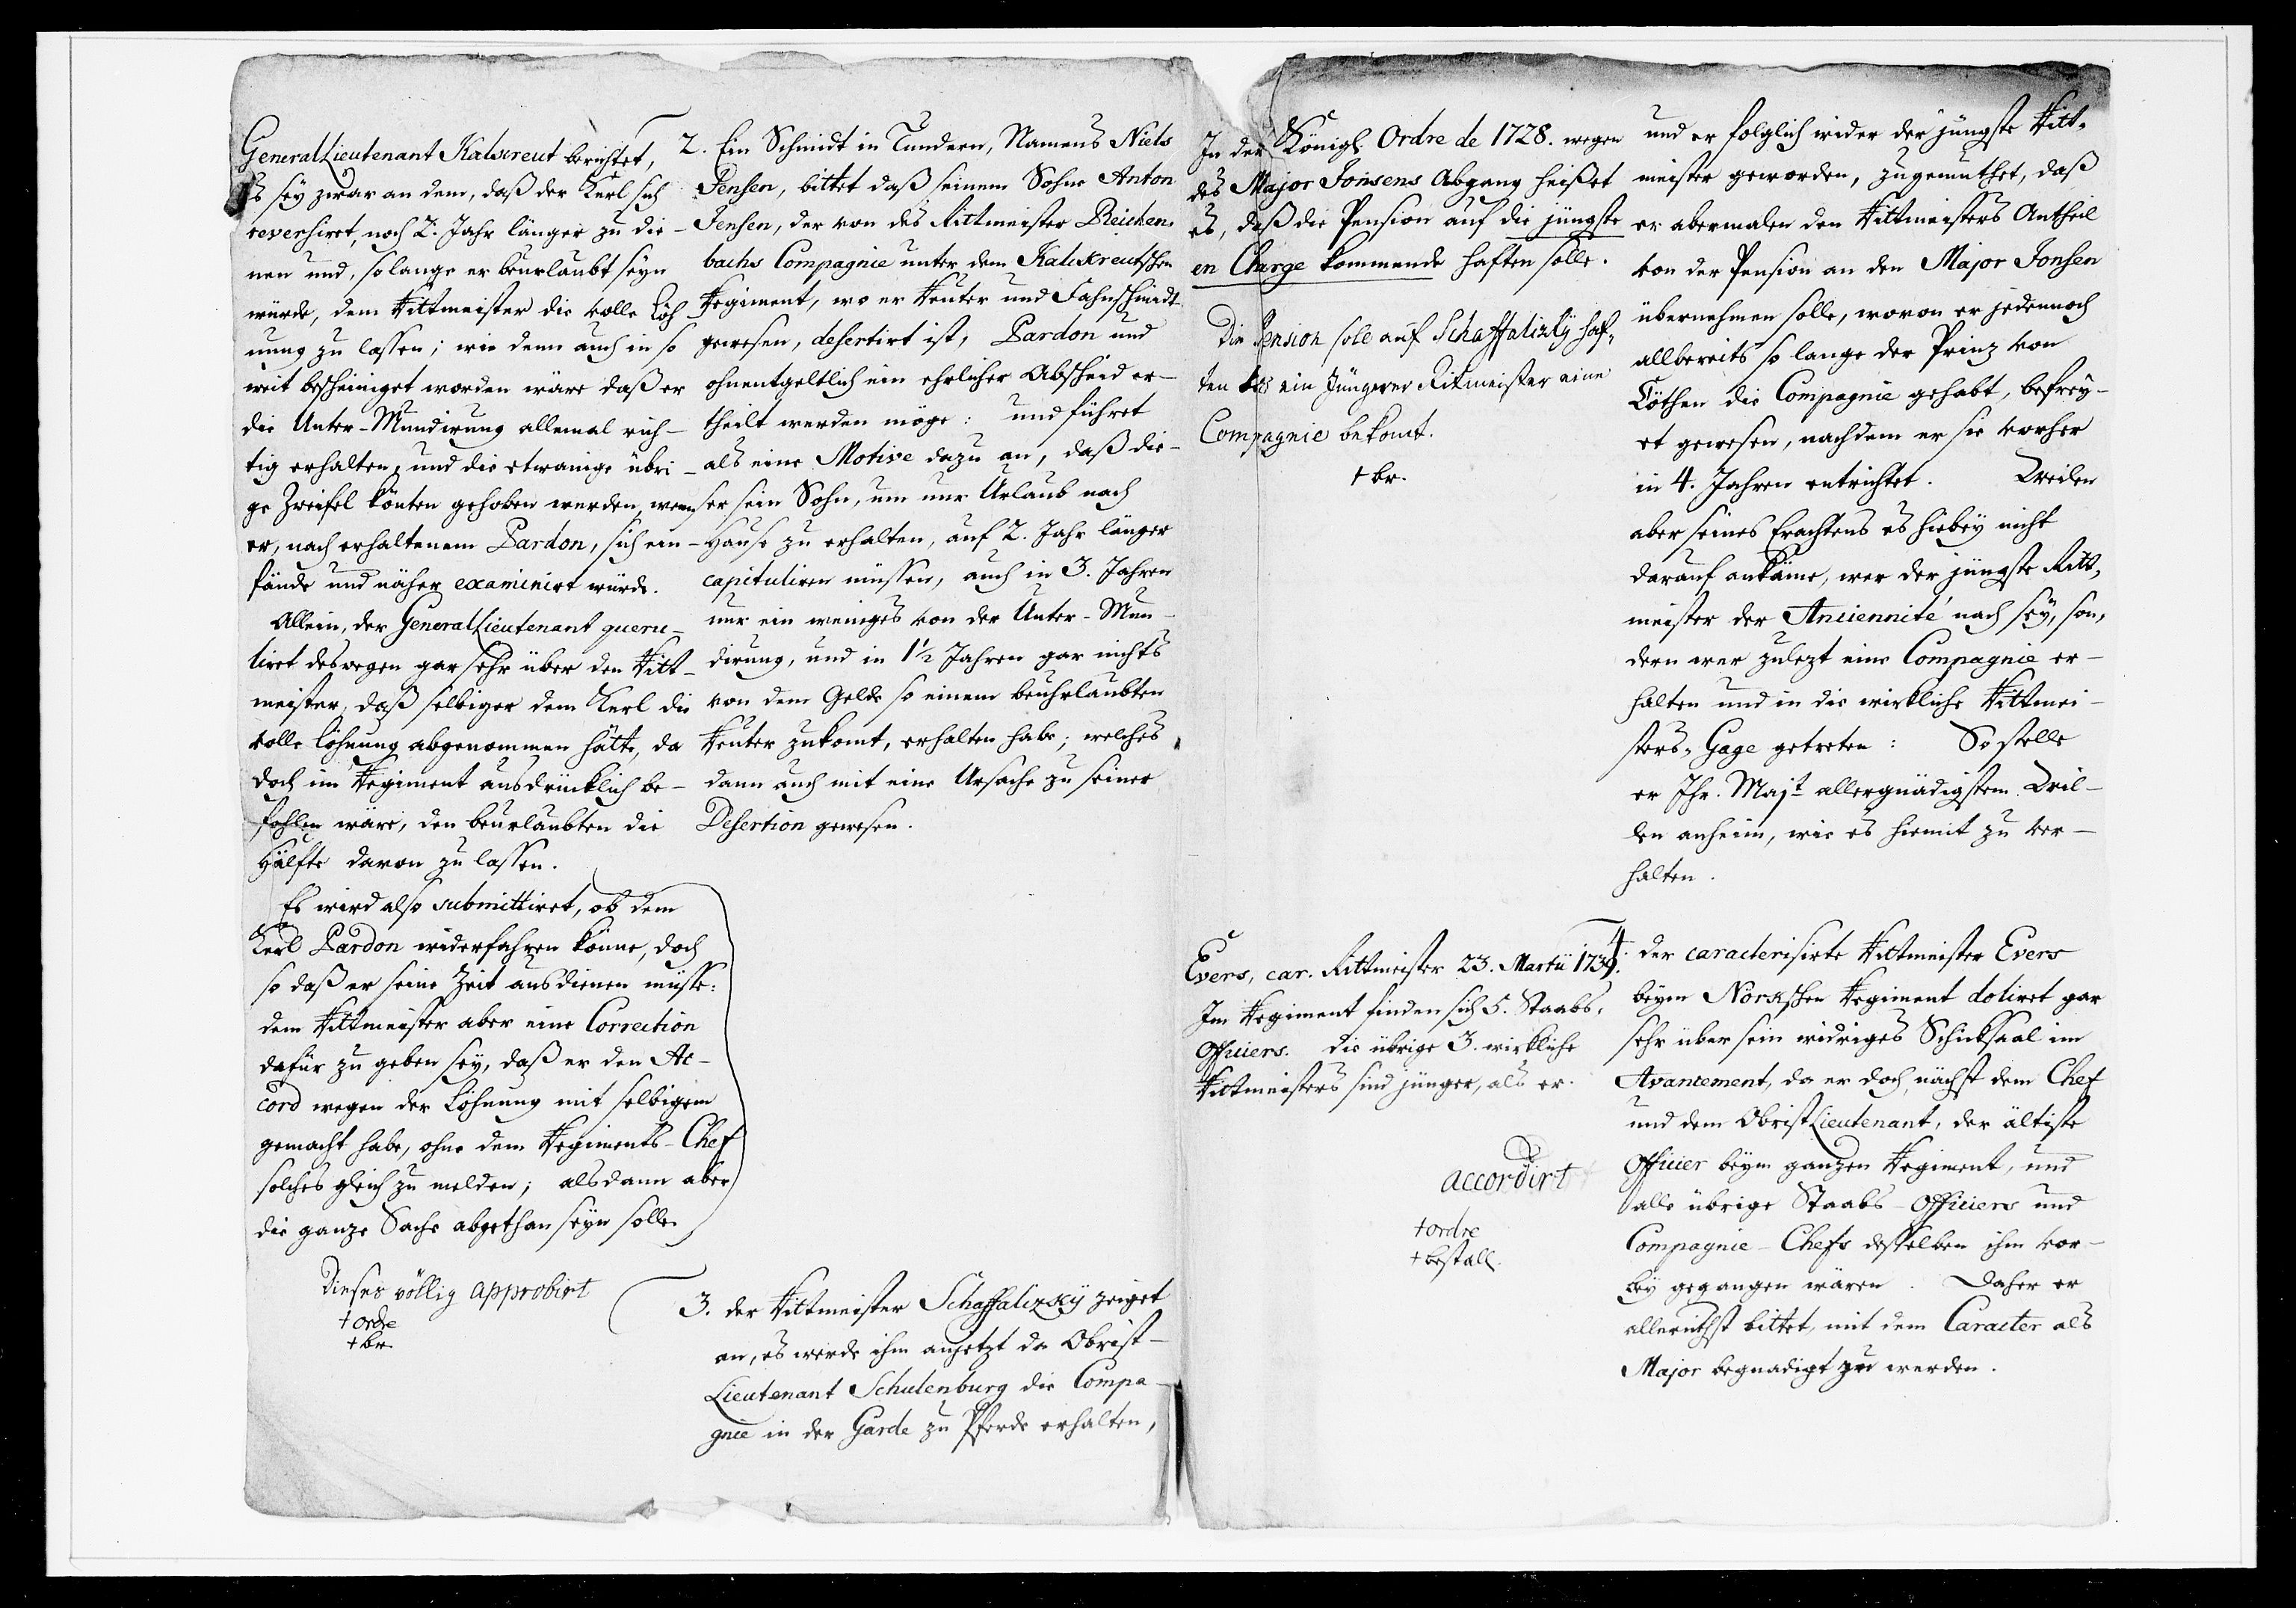 GeneralLieutenant Kalckreut berichtet,
Es sey zwar an dem, daß der Kerl sich
reversiret, noch 2. Jahr länger zu die-
nen und, solange er beurlaubt seyn
würde, dem Rittmeister die volle Löh
nung zu lassen; wie denn auch in so
weit bescheiniget worden wäre daß er
die Unter-Mundirung allemal rich-
tig erhalten, und die etwanige übri-
ge Zweifel könten gehoben werden, wenn
er, nach erhaltenem Pardon, sich ein-
fände und näher examiniret würde.
Allein, der GeneralLieutenant queru-
liret deswegen gar sehr über den Ritt-
meister, daß selbiger dem Kerl die
volle Löhnung abgenommen hätte, da
doch im Regiment ausdrücklich be-
fohlen wäre, den beurlaubten die
Hälfte davon zu lassen.
Es wird also submittiret, ob dem
Kerl Pardon widerfahren könne, doch
so daß er seine Zeit ausdienen müsse:
dem Rittmeister aber eine Correction
dafür zu geben sey, daß er den Ac-
cord wegen der Löhnung mit selbigem
gemacht habe, ohne dem Regiments-Chef
solches gleich zu melden; alsdann aber
die ganze Sache abgethan seyn solle.
Dieses völlig approbirt
+ ordre
+ br.
2. Ein Schmidt in Tundern, Namens Niels
Jensen, bittet daß seinem Sohne Anton
Jensen, der von des Rittmeister Reichen-
bachs Compagnie unter dem Kalckreutschen
Regiment, wo er Reuter und Fahnschmidt
gewesen, desertirt ist, Pardon und
ohnentgeltlich ein ehrlicher Abscheid er-
theilt werden möge: und führet
als eine Motive dazu an, daß die-
ser sein Sohn, um nur Urlaub nach
Hause zu erhalten, auf 2. Jahr länger
capituliren müssen, auch in 3. Jahren
nur ein weniges von der Unter-Mun-
dirung, und in 1½ Jahren gar nichts
von dem Gelde so einem beuhrlaubten
Reuter zukomt, erhalten habe; welches
dann auch mit eine Ursache zu seiner
Desertion gewesen.
3. der Rittmeister Schaffalizky zeiget
an, es werde ihm anjetzt da Obrist-
Lieutenant Schulenburg die Compa-
gnie in der Garde zu Pferde erhalten,
In der Königl. Ordre de 1728. wegen
des Major Jonsens Abgang heißet
es, daß die Pension auf die jüngste
en Charge kommende haften solle.
Die Pension soll auf Schaffalizky haf-
ten bis ein Jüngerer Ritmeister eine
Compagnie bekomt.
+ br.
und er folglich wider der jüngste Ritt-
meister geworden, zugemuthet, daß
er abermalen den Rittmeisters Antheil
von der Pension an den Major Jonsen
übernehmen solle, wovon er jedennoch
allbereits so lange der Prinz von
Cöthen die Compagnie gehabt, befrey-
et gewesen, nachdem er sie vorher
in 4. Jahren entrichtet. Weilen
aber seines Erachtens es hiebey nicht
darauf ankäme, wer der jüngste Ritt-
meister der Anciennité nach sey, son-
dern wer zulezt eine Compagnie er-
halten und in die wirkliche Rittmei-
sters-Gage getreten: So stelle
er Ihr. Majt allergnädigstem Wil-
len anheim, wie es hiemit zu ver-
halten.
Evers, car. Rittmeister 23. Martii 1739.
Im Regiment finden sich 5. Staabs-
Officiers. die übrige 3. wirkliche
Rittmeisters sind jünger, als er.
accordirt
+ ordre
+ bestall.
4. der caracterisirte Rittmeister Evers
beym Norckschen Regiment doliret gar
sehr über sein widriges Schicksaal im
Avancement, da er doch, nächst dem Chef
und dem ObristLieutenant, der ältiste
Officier beym ganzen Regiment, und
alle übrige Staabs-Officiers und
Compagnie-Chefs desselben ihm vor-
bey gegangen wären. Daher er
allerunthst bittet, mit dem Caracter als
Major begnadigt zu werden.